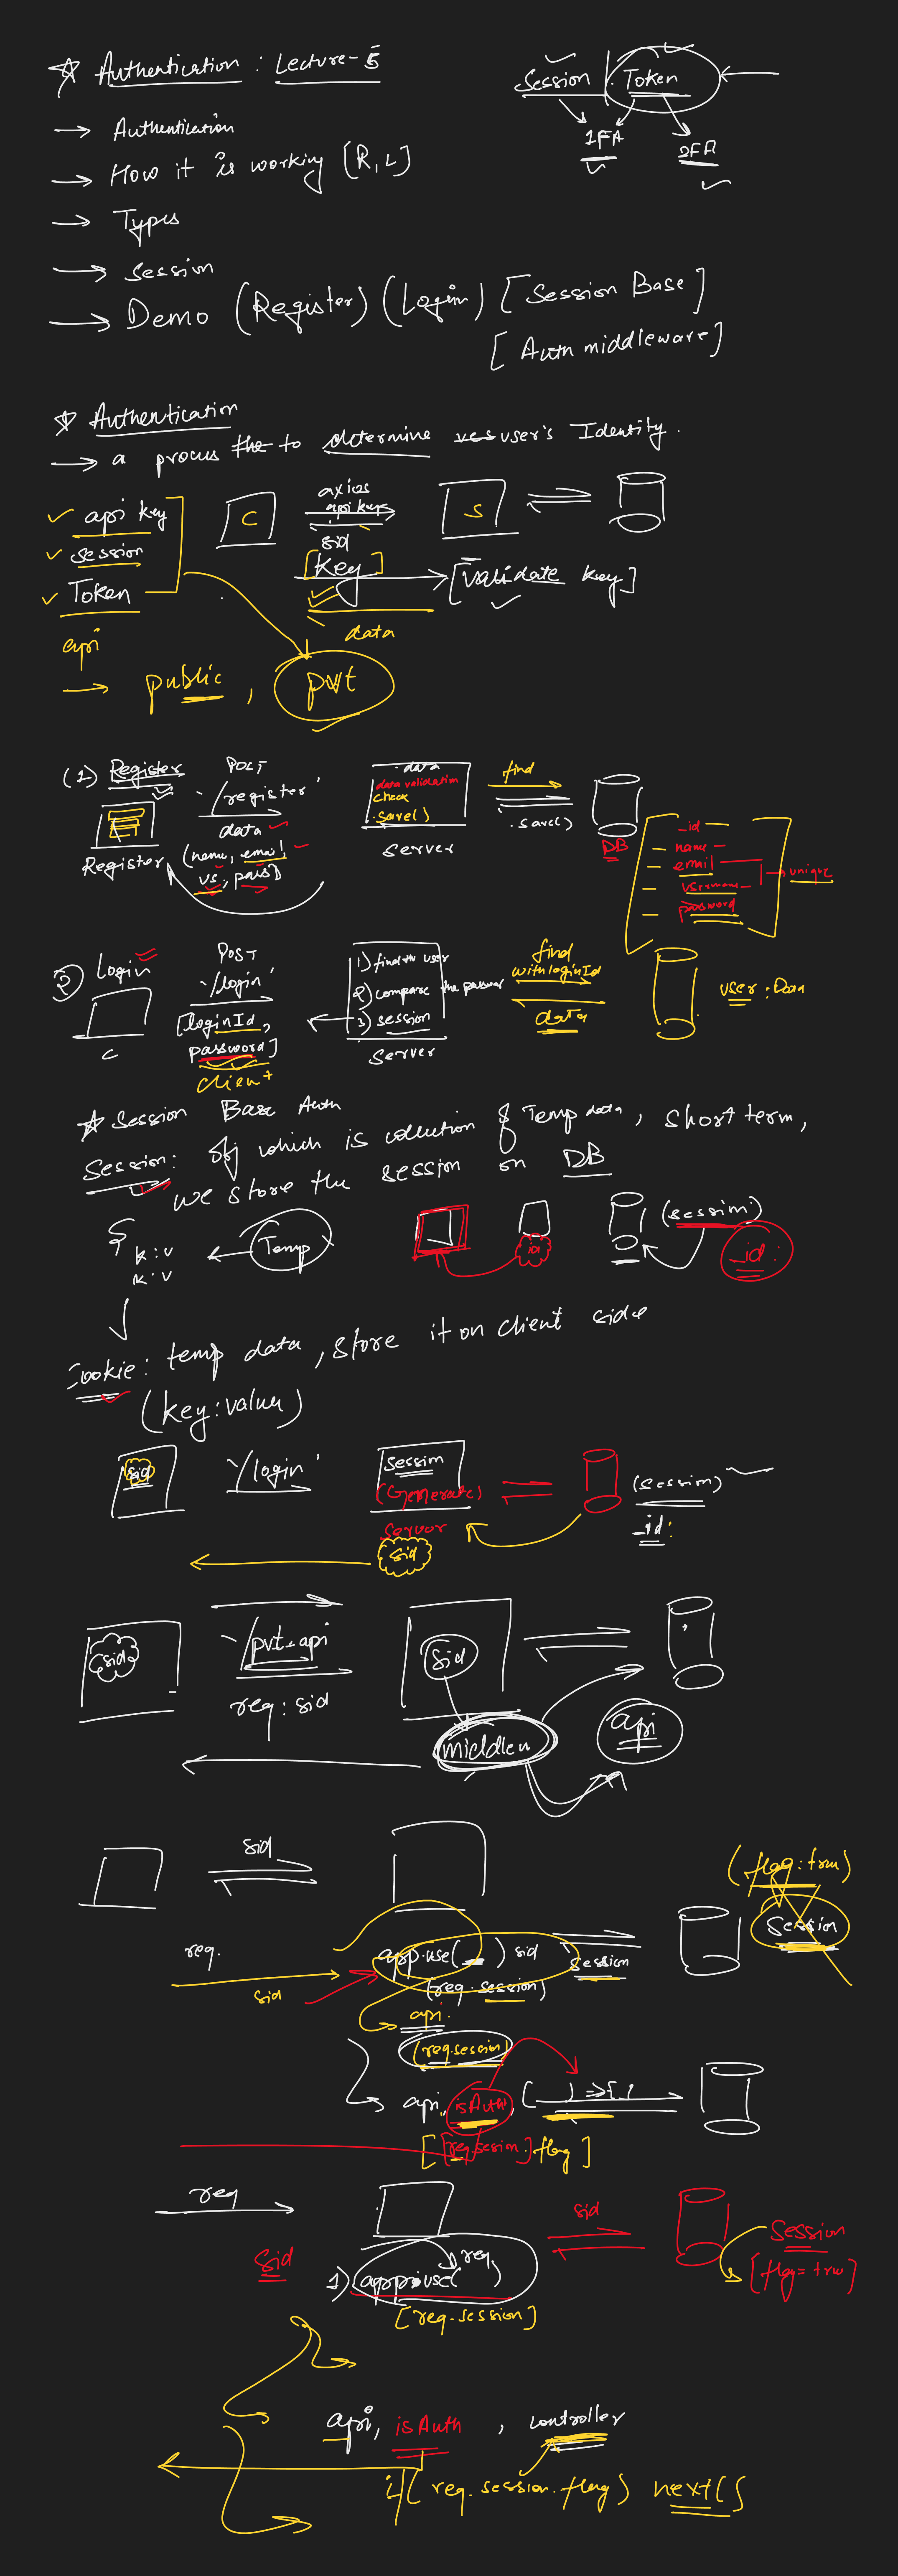 Authentication : Lecture-5
Session | Token
1FA 2FA
→ Authentication
→ How it is working [R, L]
→ Types
→ Session
→ Demo (Register) (Login) [Session Base]
[Auth middleware]
Authentication
→ a process to determine user's Identity.
api key
session
Token
C
axios
api key
sid
S
[key]
[validate key]
data
api
→ public, pvt
(1) Register
POST
'/register'
data
(name, email,
us, pass)
Register
data
data validation
check
.save()
server
find
.save()
DB
_id
name
email
username
password
unique
2) Login
POST
'/login'
[loginId,
password]
client
C
1) find the user
2) compare the password
3) session
Server
find
with loginId
data
user : Data
Session Base Auth
Session: Obj which is collection of Temp data, short term,
we store the session on DB
k : v
k : v
Temp
id
(session)
_id :
Cookie : temp data, store it on client side
(key : value)
sid
'/login'
Session
(Generate)
server
sid
(session)
_id :
sid
'/pvt-api
req : sid
sid
middlew
api
sid
(flag : true)
Session
req.
sid
app.use( ) sid
(req.session)
session
api.
(req.session)
api, isAuth, ( ) => {
[req.session].flag]
req
sid
sid
Session
[flag = true]
1) app.use( )
req
[req.session]
api, isAuth, controller
if( req.session.flag) next()